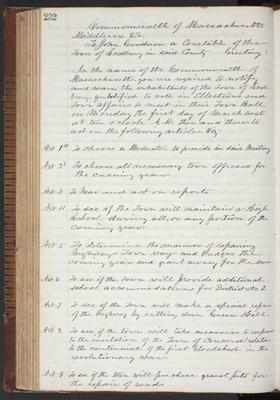 232
Commonwealth of Massachusetts
Middlesex Ss.
To John Goodnow a Constable of the
Town of Sudbury in said County Greeting:
In the name of the Commonwealth of
Massachusetts, you are required to notify
and warn the inhabitants of the Town of Sud-
bury qualified to vote in Elections and
Town affairs to meet in their Town Hall
on Monday the first day of March next
at ten o'clock A.M. then and there to
act on the following articles Viz:
Art 1st To choose a Moderator to preside in said Meeting
Art 2d To choose all necessary town officers for
the ensuing year.
Art 3 To hear and act on reports
Art 4 To see if the Town will maintain a High
School, during all, or any portion of the
coming year.
Art 5 To determine the manner of repairing
highways Town ways and bridges the
coming year and grant money for the same
Art 6 To see if the Town will provide additional
school accommodations for District No. 2.
Art 7 To see if the Town will make a special repair
of the highway by cutting down Green Hill.
Art 8 To see if the town will take measures to respond
to the invitation of the Town of Concord relative
to the centennial of the first bloodshed in the
revolutionary war
Art 9 To see if the Town will purchase gravel pits for
the repair of roads